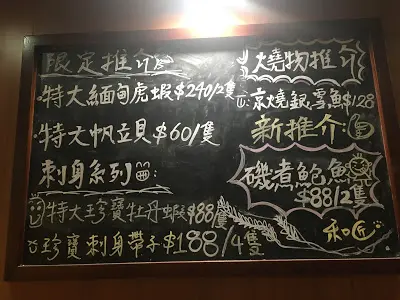 限定推介
·特大緬甸虎蝦$240/2隻
·特大帆立貝$60/隻
刺身系列:
特大珍寶牡丹蝦$88隻
珍寶刺身帶子$188/4隻
燒物推介
京燒銀雪魚$128
新推介:
磯煮鮑魚
$88/2隻
和匠